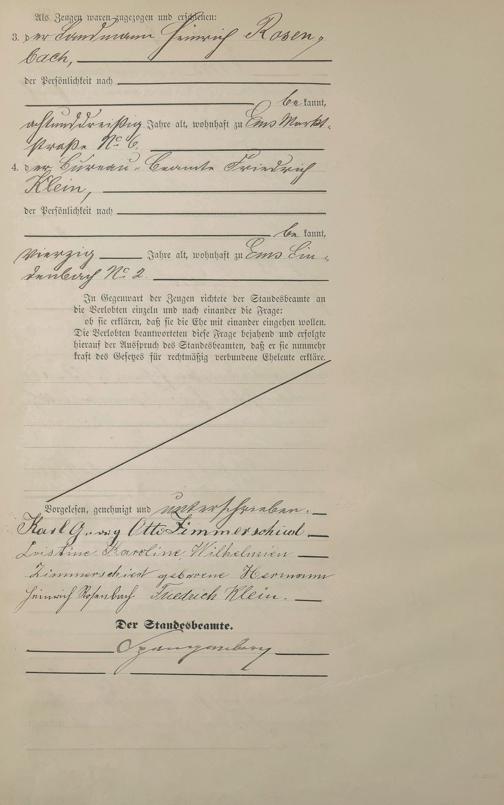 Als Zeugen waren zugezogen und erschienen:
3. der Landmann Heinrich Rosen-
bach,
der Persönlichkeit nach
be kannt,
achtunddreißig Jahre alt, wohnhaft zu Ems Markt-
straße No 6.
4. der Bureau-Beamte Friedrich
Klein,
der Persönlichkeit nach
be kannt,
vierzig Jahre alt, wohnhaft zu Ems Lin-
denbach No 2.
In Gegenwart der Zeugen richtete der Standesbeamte an
die Verlobten einzeln und nach einander die Frage:
ob sie erklären, daß sie die Ehe mit einander eingehen wollen.
Die Verlobten beantworteten diese Frage bejahend und erfolgte
hierauf der Ausspruch des Standesbeamten, daß er sie nunmehr
kraft des Gesetzes für rechtmäßig verbundene Eheleute erkläre.
Vorgelesen, genehmigt und unterschrieben.
Karl Georg Otto Zimmerschied
Karoline Wilhelmien
Zimmerschied geborene Hermann
Heinrich Rosenbach. Friedrich Klein.
Der Standesbeamte.
Spangenberg